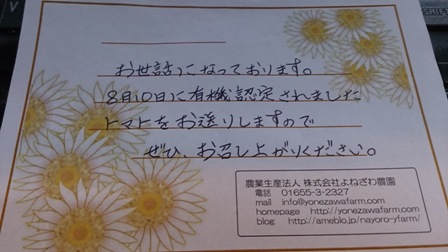 お世話になっております。
8月10日に有機認定されました
トマトをお送りしますので
ぜひ、お召し上がりください。
農業生産法人 株式会社よねざわ農園
電話 01655-3-2327
mail info@yonezawafarm.com
homepage http://yonezawafarm.com
blog http://ameblo.jp/nayoro-yfarm/
SHIFT